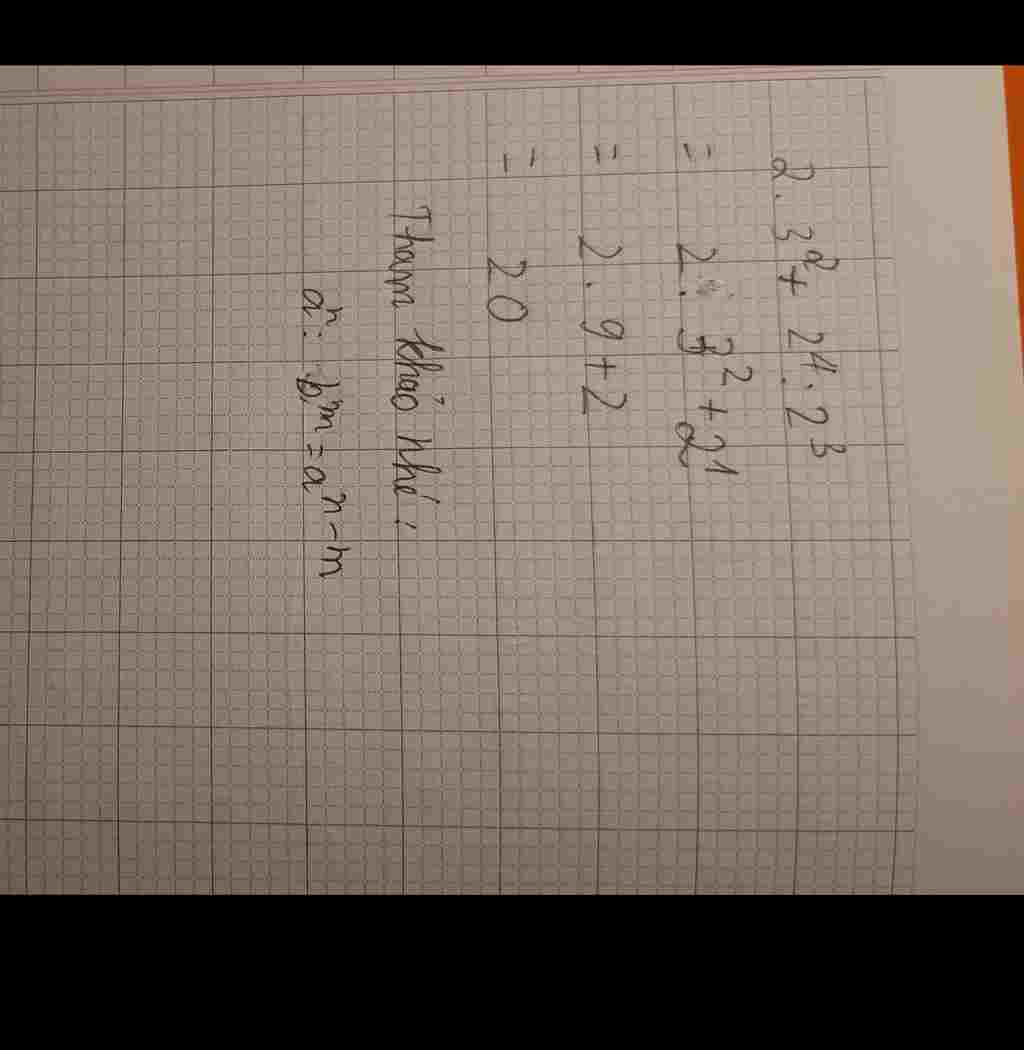 2 . 3² + 2⁴ . 2³
= 2 . 3² + 2¹
= 2 . 9 + 2
= 20
Tham khảo nhé !
aⁿ : bᵐ = aⁿ⁻ᵐ